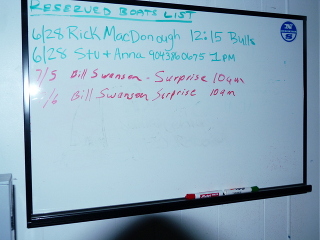 RESERVED BOATS LIST
6/28 RICK MACDONOUGH 12:15 Bulls
6/28 Stu + Anna 9043860675 1PM
7/5 Bill Swanson - Surprise 10am
/6 Bill Swanson Surprise 10am